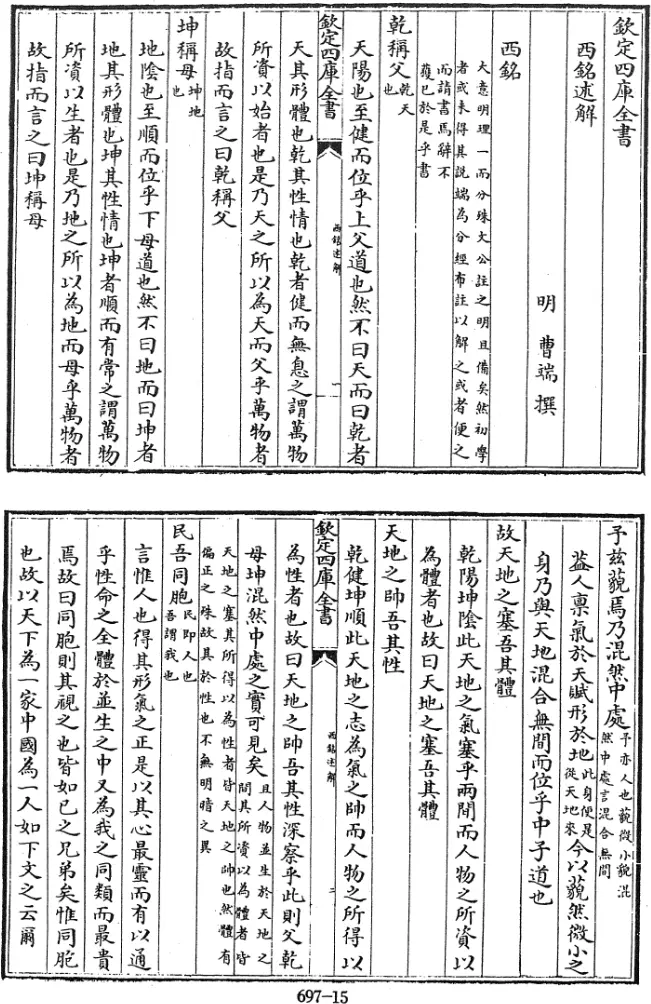 欽定四庫全書
西銘述解
明 曹端 撰
西銘
大意明理一而分殊文公註之明且備矣然初學
者或未得其説端為分經布註以解之或者便之
而請書焉辭不
獲已於是乎書
乾稱父乾天也
天陽也至健而位乎上父道也然不曰天而曰乾者
欽定四庫全書 西銘述解 一
天其形體也乾其性情也乾者健而無息之謂萬物
所資以始者也是乃天之所以為天而父乎萬物者
故指而言之曰乾稱父
坤稱母坤地也
地陰也至順而位乎下母道也然不曰地而曰坤者
地其形體也坤其性情也坤者順而有常之謂萬物
所資以生者也是乃地之所以為地而母乎萬物者
故指而言之曰坤稱母
予兹藐焉乃混然中處予亦人也藐微小貌混然中處言混合無間
葢人禀氣於天賦形於地此身便是從天地來今以藐然微小之
身乃與天地混合無間而位乎中子道也
故天地之塞吾其體
乾陽坤陰此天地之氣塞乎兩間而人物之所資以
為體者也故曰天地之塞吾其體
天地之帥吾其性
乾健坤順此天地之志為氣之帥而人物之所得以
欽定四庫全書 西銘述解 二
為性者也故曰天地之帥吾其性深察乎此則父乾
母坤混然中處之實可見矣且人物並生於天地之間其所資以為體者皆
天地之塞其所得以為性者皆天地之帥也然體有
偏正之殊故其於性也不無明暗之異
民吾同胞民即人也吾謂我也
言惟人也得其形氣之正是以其心最靈而有以通
乎性命之全體於並生之中又為我之同類而最貴
焉故曰同胞則其視之也皆如己之兄弟矣惟同胞
也故以天下為一家中國為一人如下文之云爾
697-15